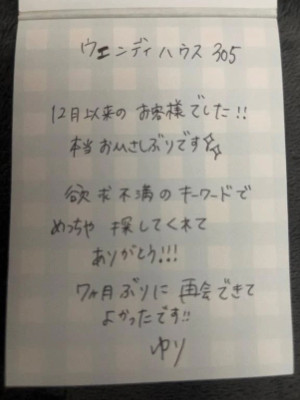 ウエンディハウス 305
12月以来の お客様でした!!
本当おひさしぶりです☆
欲求不満のキーワードで
めっちゃ 探してくれて
ありがとう!!!
7ヶ月ぶりに 再会できて
よかったです!!
ゆり